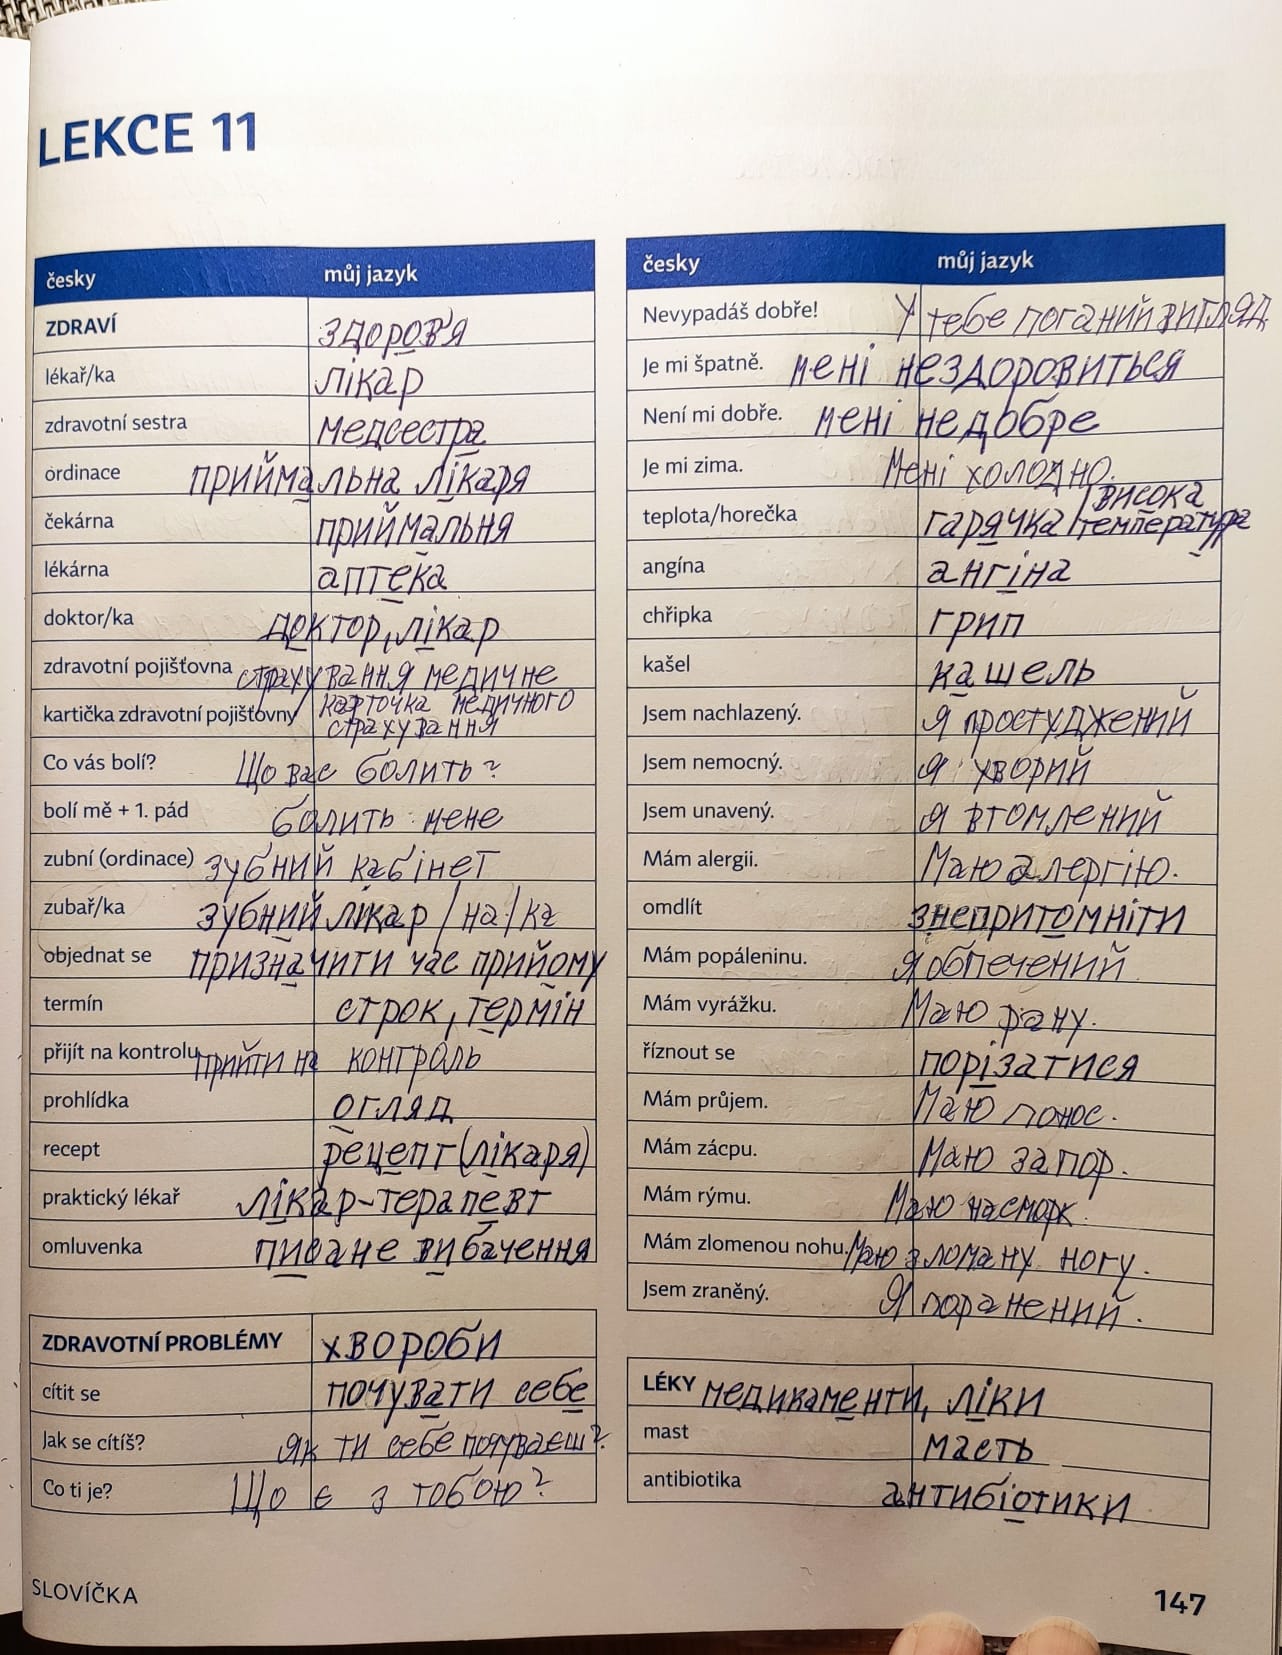 LEKCE 11
česky můj jazyk
ZDRAVÍ здоров'я
lékař/ka лікар
zdravotní sestra медсестра
ordinace приймальна лікаря
čekárna приймальня
lékárna аптека
doktor/ka доктор, лікар
zdravotní pojišťovna страхування медичне
kartička zdravotní pojišťovny карточка медичного
страхування
Co vás bolí? Що вас болить?
bolí mě + 1. pád болить мене
zubní (ordinace) зубний кабінет
zubař/ka зубний лікар/на/ка
objednat se призначити час прийому
termín строк, термін
přijít na kontrolu прийти на контроль
prohlídka огляд
recept рецепт (лікаря)
praktický lékař лікар-терапевт
omluvenka писане вибачення
ZDRAVOTNÍ PROBLÉMY хвороби
cítit se почувати себе
Jak se cítíš? як ти себе почуваєш?
Co ti je? Що є з тобою?
česky můj jazyk
Nevypadáš dobře! У тебе поганий вигляд
Je mi špatně. мені нездоровиться
Není mi dobře. мені недобре
Je mi zima. Мені холодно.
teplota/horečka гарячка/висока
температура
angína ангіна
chřipka грип
kašel кашель
Jsem nachlazený. я простуджений
Jsem nemocný. я хворий
Jsem unavený. я втомлений
Mám alergii. Маю алергію.
omdlít знепритомніти
Mám popáleninu. я обпечений
Mám vyrážku. Маю рану.
říznout se порізатися
Mám průjem. Маю понос.
Mám zácpu. Маю запор.
Mám rýmu. Маю насморк.
Mám zlomenou nohu. Маю зломану ногу.
Jsem zraněný. Я поранений.
LÉKY медикаменти, ліки
mast масть
antibiotika антибіотики
SLOVÍČKA
147